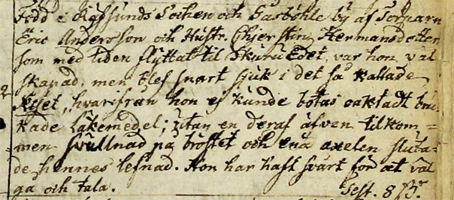 Född i Kjhlunds Sochen och Gasböhle by af Torparn
Eric Andersson och Hustr. Chjerstin Hermansdotter
som med tiden flyttat til Skuru Edet, var hon väl
skapad, men blef snart sjuk i det så kallade
2
Riset, hvarifrån hon ej kunde botas oaktadt bru=
kade läkemedel; utan en deraf äfven tilkom=
men svullnad på bröstet och ena axelen sluta=
de hennes lefnad. Hon har haft svårt för at väl
ga och tala.
Sept. 8